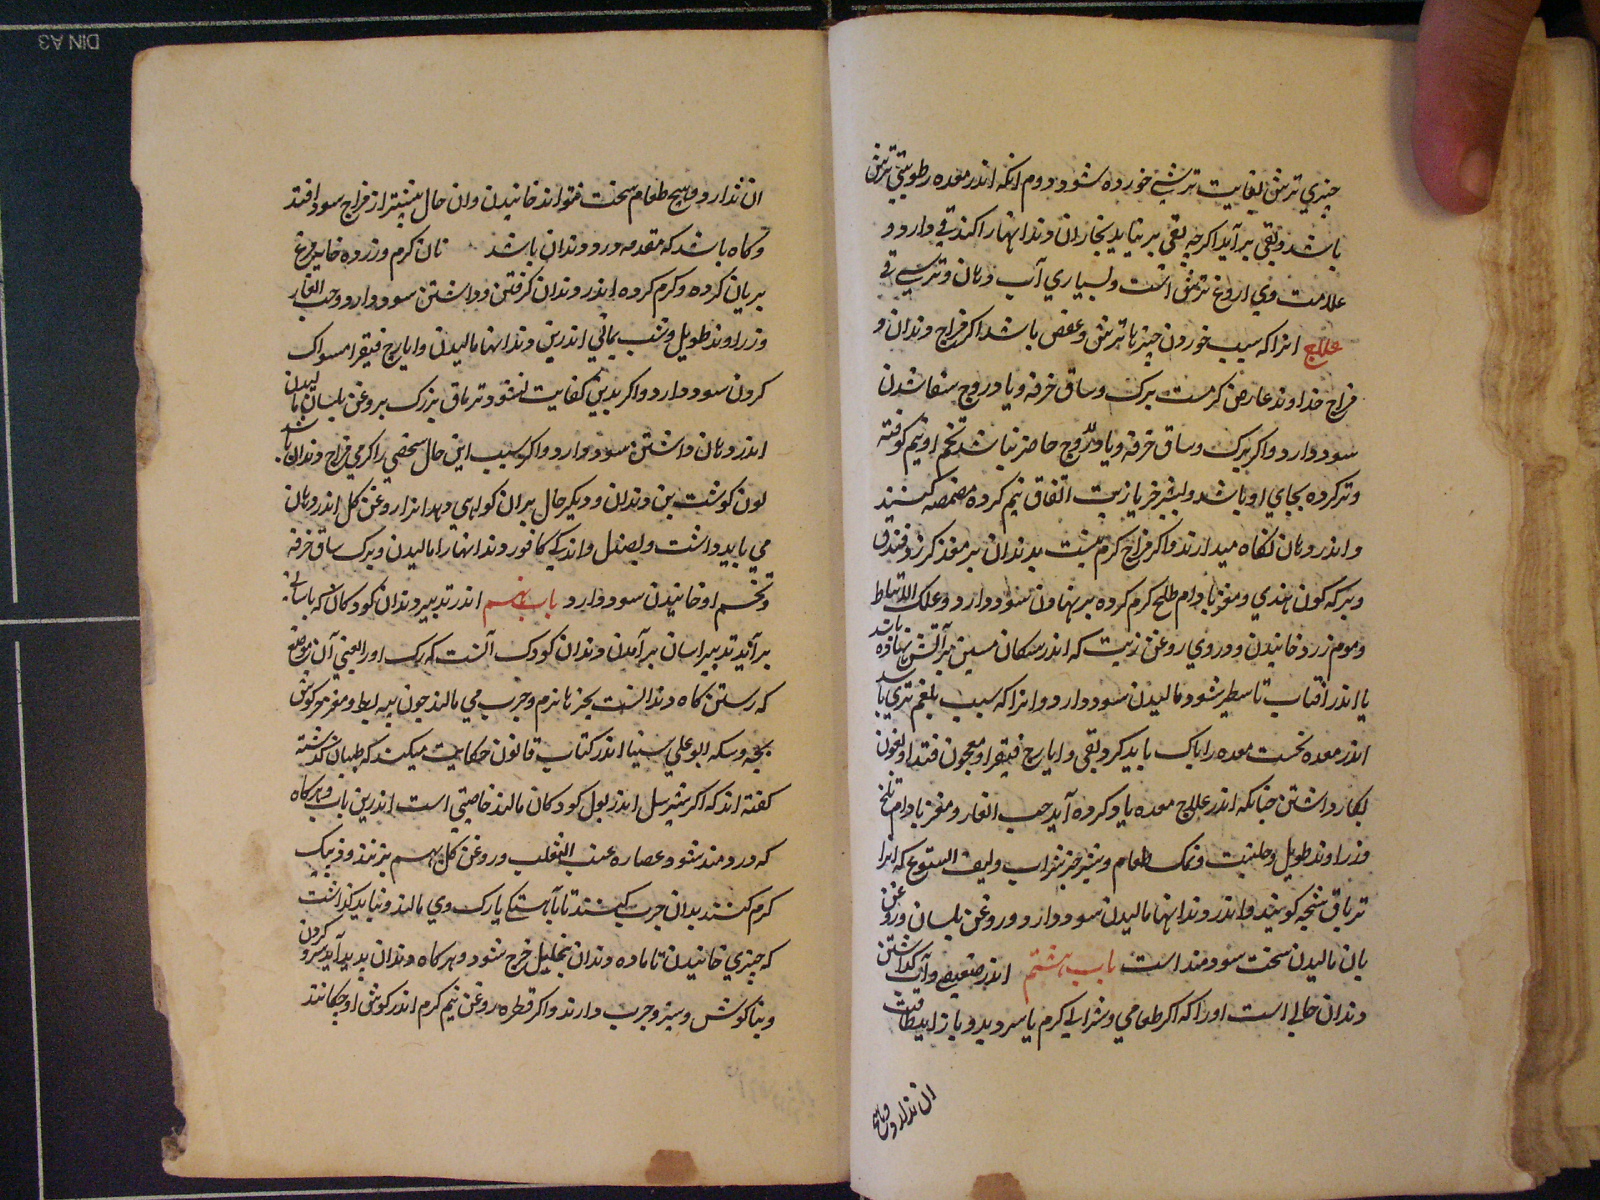 چیزی ترش بغایت ترشی خورده شود دوم آنکه اندر معده رطوبتی ترش
باشد و بقی برآید اگرچه بقی برنیاید بخار آن دندانها را کند قی دارد و
علامت وی اروغ ترش است و بسیاری آب دهان و ترشی قی
علاج انرا که سبب خوردن چیزها ترش و عفص باشد اگر مزاج دندان و
مزاج خداوند عارض گرمست برک و ساق خرفه و یا دروج سفا شدن
سود دارد و اگر برک و ساق خرفه و یا دروج حاضر نباشد تخم او نیم کوفته
و تر کرده بجای او باشد و بشیر خر یا زیت انفاق نیم کرده مضمضه کنند
و اندر دهان نگاه میدارند و اگر مزاج گرم نیست بدندان بر مغز گرز و فندق
و برکه کون هندی و مغز بادام طلخ گرم کرده بر نهادن سود دارد و علک الانباط
و موم زرد خائیدن و دردی روغن زیت که اندر مسکان مسین بر آتش نهاده باشد
یا اندر آفتاب تا سطبر شود مالیدن سود دارد و انرا که سبب بلغم ترش باشد
اندر معده نخست معده را پاک باید کرد بقی و ایارج فیقرا و معجون
بکار داشتن چنانکه اندر علاج معده یاد کرده آید حب الغار و مغز بادام تلخ
و زراوند طویل و حلتیت و نمک طعام و شیر خر بشراب و لیف الیتوع که انرا
تریاق سنجه کویند و اندر دندانها مالیدن سود دارد و روغن بلسان و روغن
بان مالیدن سخت سودمند است باب هشتم اندر ضعیفی و آب گذاشتن
دندان حالی است او را که اگر طعامی و شرابی گرم یا سرد بدو باز آید طاقت
ان ندارد و هیچ
ان ندارد و هیچ طعام سخت نتواند خائیدن و ان حال بیشتر از مزاج سود افتد
و گاه باشد که مقدمه درد دندان باشد نان گرم و زرده خایه مرغ
بریان کرده و گرم کرده اندر دندان گرفتن و داشتن سود دارد و حب الغار
و زراوند طویل و شب یمانی اندرین دندانها مالیدن و ایارج فیقرا مسواک
کردن سود دارد و اگر بدین کفایت نشود تریاق بزرک بروغن بلسان مالیدن
اندر دهان داشتن سود دارد و اگر سبب این حال شخصی را گرمی مزاج دندان باشد
لون گوشت بن دندان و دیگر حال بران کواهی دهد انرا روغن گل اندر دهان
می باید داشت و بصندل و اندکی کافور دندانها را مالیدن و برک ساق خرفه
و تخم او خائیدن سود دارد باب نهم اندر تدبیر دندان کودکان که باسانی
برآید تدبیر اسان برآمدن دندان کودک آنست که رک او را یعنی آن موضع
که رستن گاه دندانست بچیزها نرم و چرب می مالند چون پیه بط و مغز خرگوش
پخته و مسکه ابو علی سینا اندر کتاب قانون حکایت میکند که طبیبان گذشته
گفته اند که اگر شیر سک اندر بول کودکان مالند خاصیتی است اندرین باب و هر گاه
که دردمند شود عصاره عنب الثعلب و روغن گل بهم بزنند و نیک
گرم کنند بدان چرب کنند تا بآهستگی پارک وی مالند و نباید گذاشت
که چیزی خائیدن تا ماده دندان بتحلیل خرج شود و هر گاه دندان پدید آید سر و گردن
و بناگوش و سر و چرب دارند و اگر قطره روغن نیم گرم اندر گوش او چکانند
DIN A3